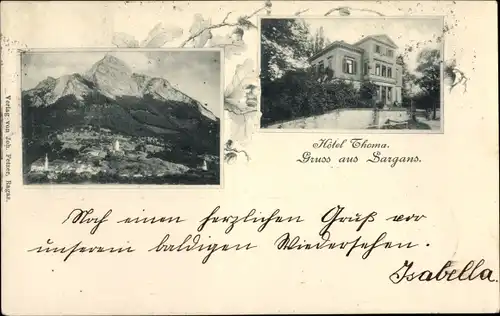 Hôtel Thoma.
Gruss aus Sargans.
Verlag von Joh. Fetzer, Ragaz.
Noch einen herzlichen Gruß vor
unserem baldigen Wiedersehen.
Isabella.